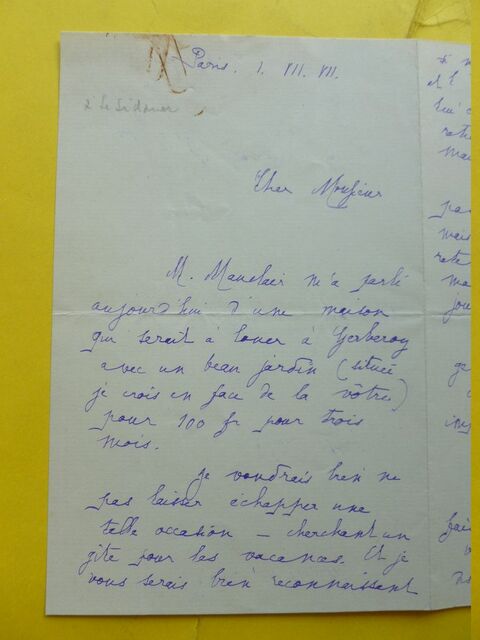 Paris. 1. VII. VII.
à Le Sidaner
Cher Monsieur
M. Mauclair m'a parlé
aujourd'hui d'une maison
qui serait à louer à Gerberoy
avec un beau jardin (située
je crois en face de la vôtre)
pour 100 fr pour trois
mois.
Je voudrais bien ne
pas laisser échapper une
telle occasion – cherchant un
gîte pour les vacances. Et je
vous serais bien reconnaissant
et l'
mais